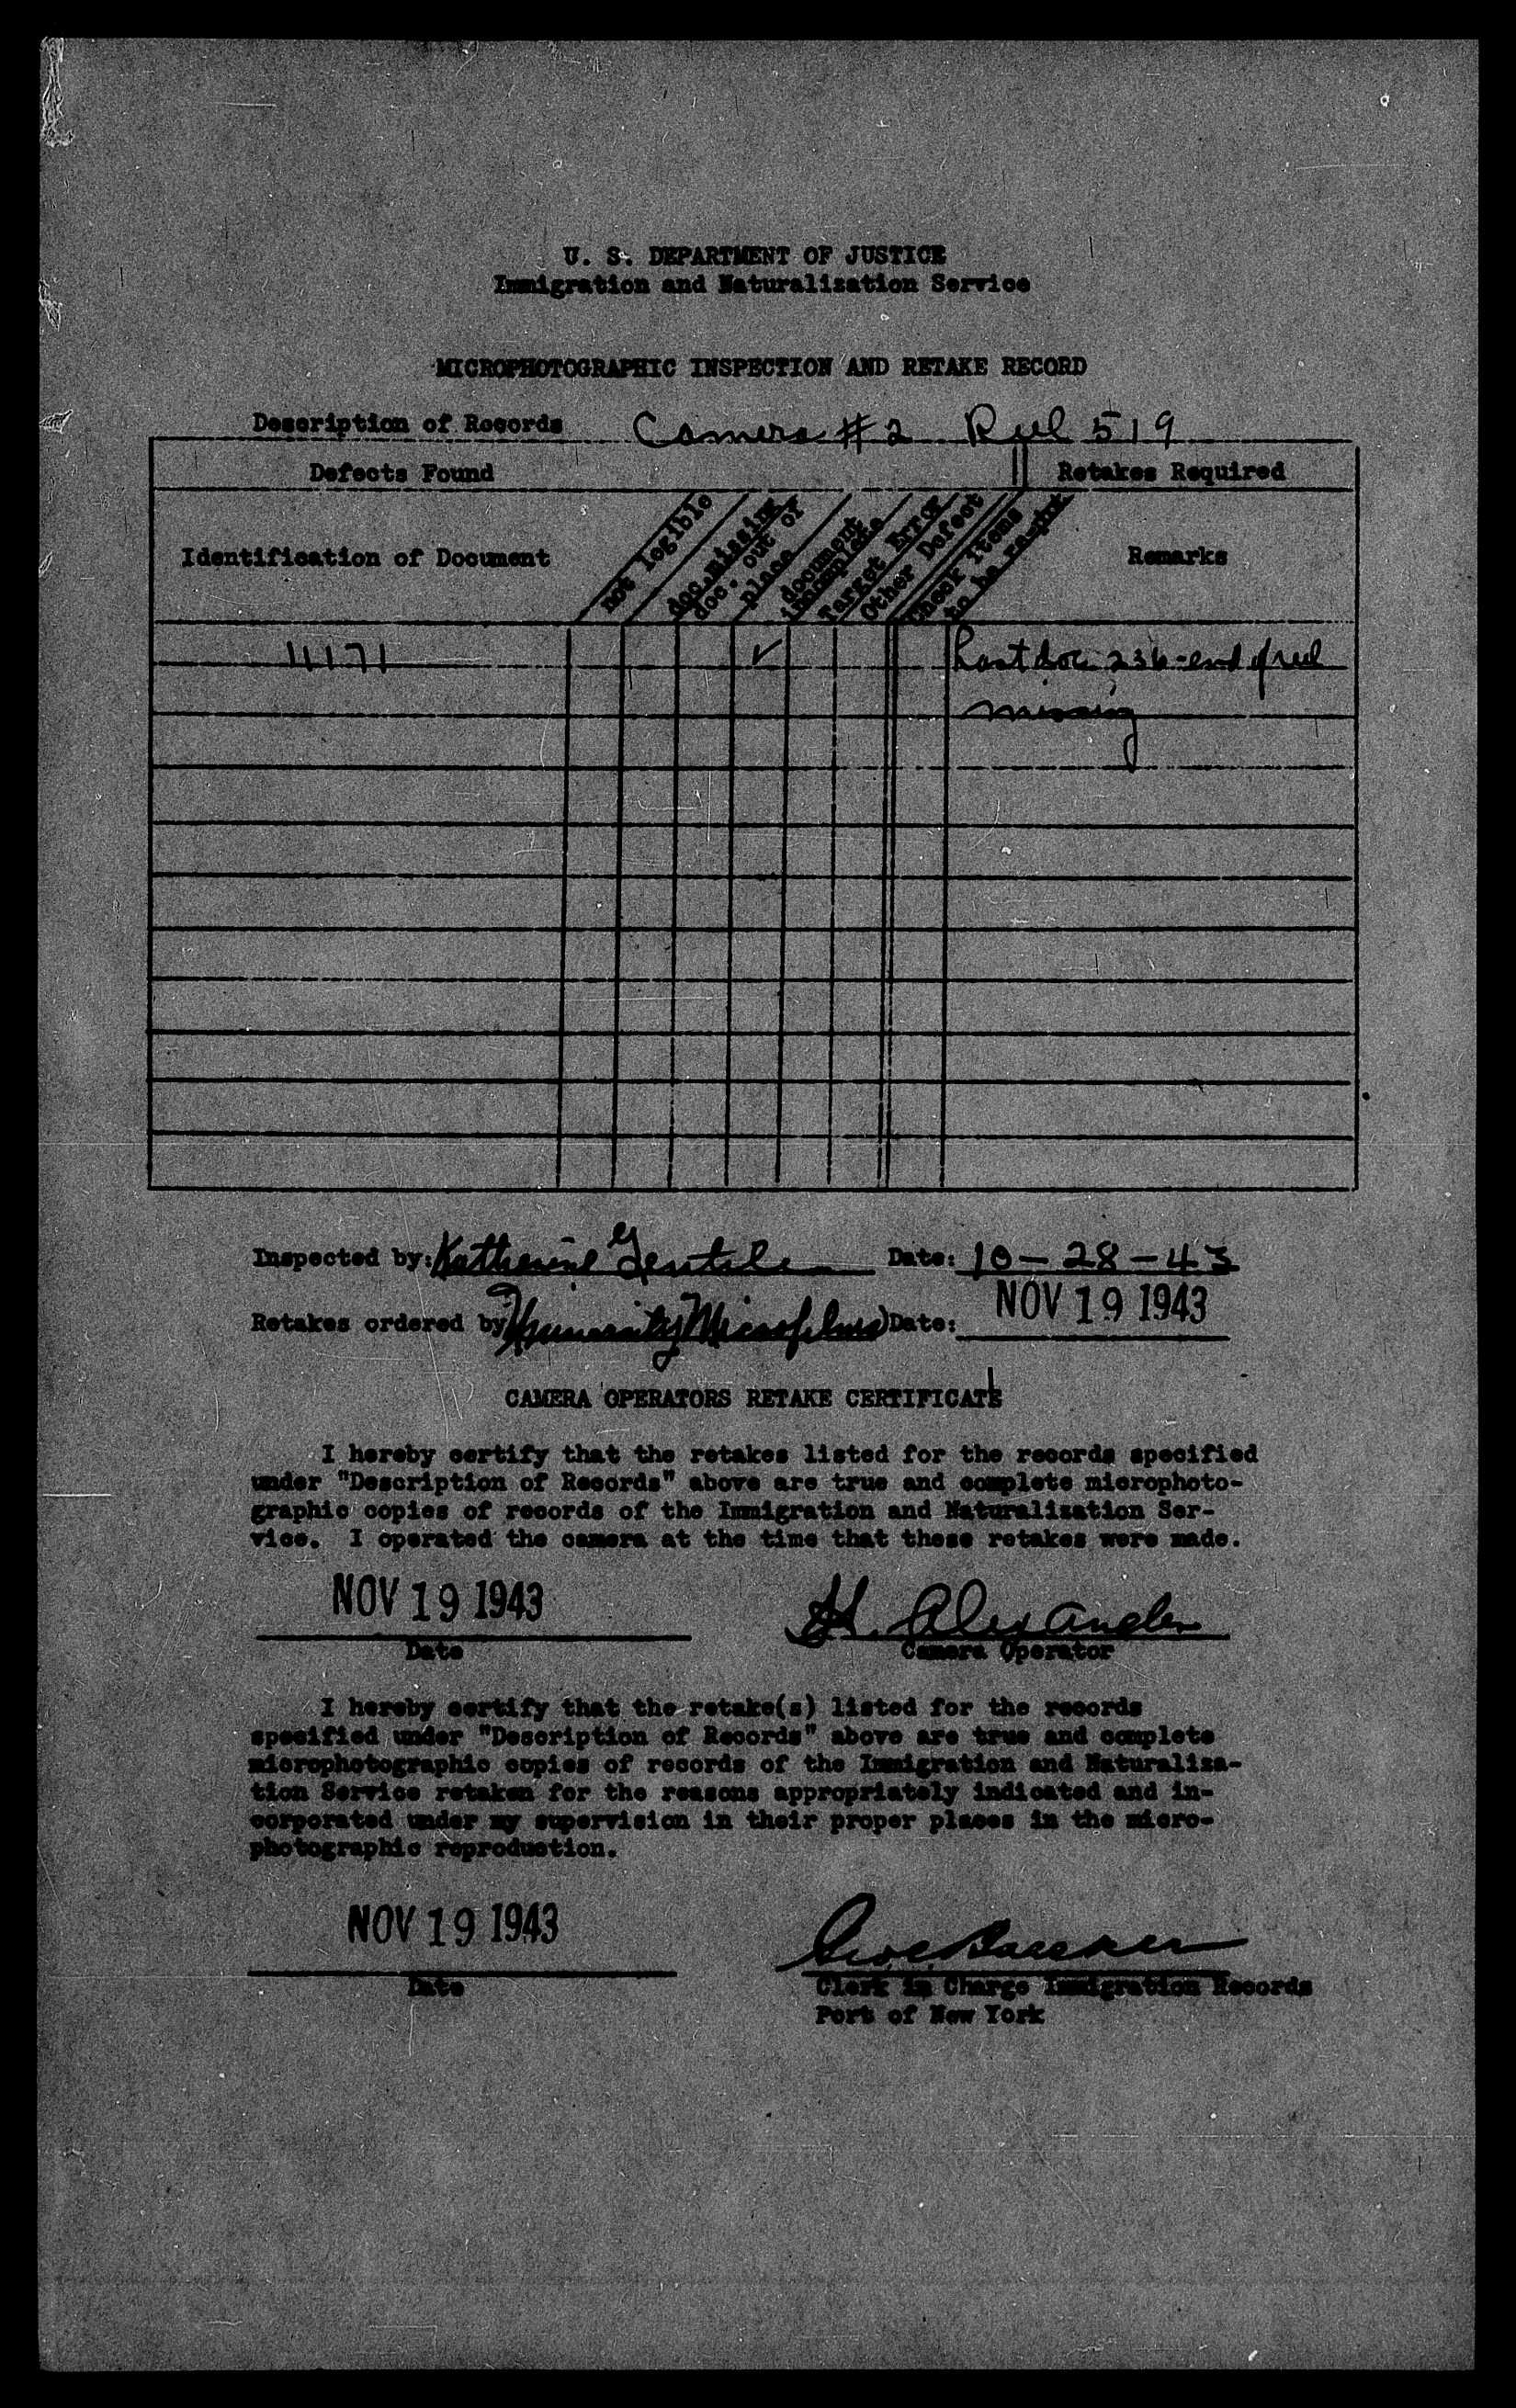 U. S. DEPARTMENT OF JUSTICE
Immigration and Naturalization Service
MICROPHOTOGRAPHIC INSPECTION AND RETAKE RECORD
Description of Records Camera #2 Reel 519
Defects Found Retakes Required
Identification of Document
not legible
doc. missing
doc. out of place
document incomplete
Target Error
Other Defect
Check items to be
Remarks
11171 ✓ Last doc 236-end of reel
missing
Inspected by: Katherine Gentile Date: 10-28-43
Retakes ordered by University Microfilms Date: NOV 19 1943
CAMERA OPERATORS RETAKE CERTIFICATE
I hereby certify that the retakes listed for the records specified
under "Description of Records" above are true and complete microphoto-
graphic copies of records of the Immigration and Naturalization Ser-
vice. I operated the camera at the time that these retakes were made.
NOV 19 1943 H. Alexander
Date Camera Operator
I hereby certify that the retake(s) listed for the records
specified under "Description of Records" above are true and complete
microphotographic copies of records of the Immigration and Naturaliza-
tion Service retaken for the reasons appropriately indicated and in-
corporated under my supervision in their proper places in the micro-
photographic reproduction.
NOV 19 1943
Date Clerk in Charge Immigration Records
Port of New York